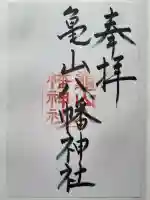 奉拝
亀山八幡神社